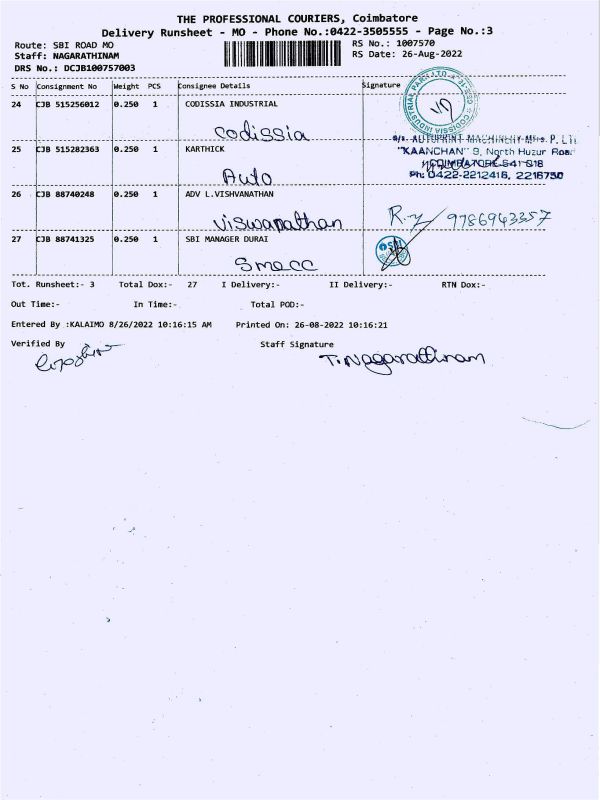 THE PROFESSIONAL COURIERS, Coimbatore
Delivery Runsheet - MO - Phone No.:0422-3505555 - Page No.:3
Route: SBI ROAD MO RS No.: 1007570
Staff: NAGARATHINAM RS Date: 26-Aug-2022
DRS No.: DCJB100757003
S No Consignment No Weight PCS Consignee Details Signature
24 CJB 515256012 0.250 1 CODISSIA INDUSTRIAL
Codissia
25 CJB 515282363 0.250 1 KARTHICK
AUTOPRINT MACHINERY Mfrs. P. LTD
"KAANCHAN" 9, North Huzur Road
COIMBATORE-641 018
Ph: 0422-2212416, 2216750
Auto
26 CJB 88740248 0.250 1 ADV L.VISHVANATHAN
Viswanathan 9786943357
27 CJB 88741325 0.250 1 SBI MANAGER DURAI
SBI
Smecc
Tot. Runsheet:- 3 Total Dox:- 27 I Delivery:- II Delivery:- RTN Dox:-
Out Time:- In Time:- Total POD:-
Entered By :KALAIMO 8/26/2022 10:16:15 AM Printed On: 26-08-2022 10:16:21
Verified By Staff Signature
T.Nagarathinam